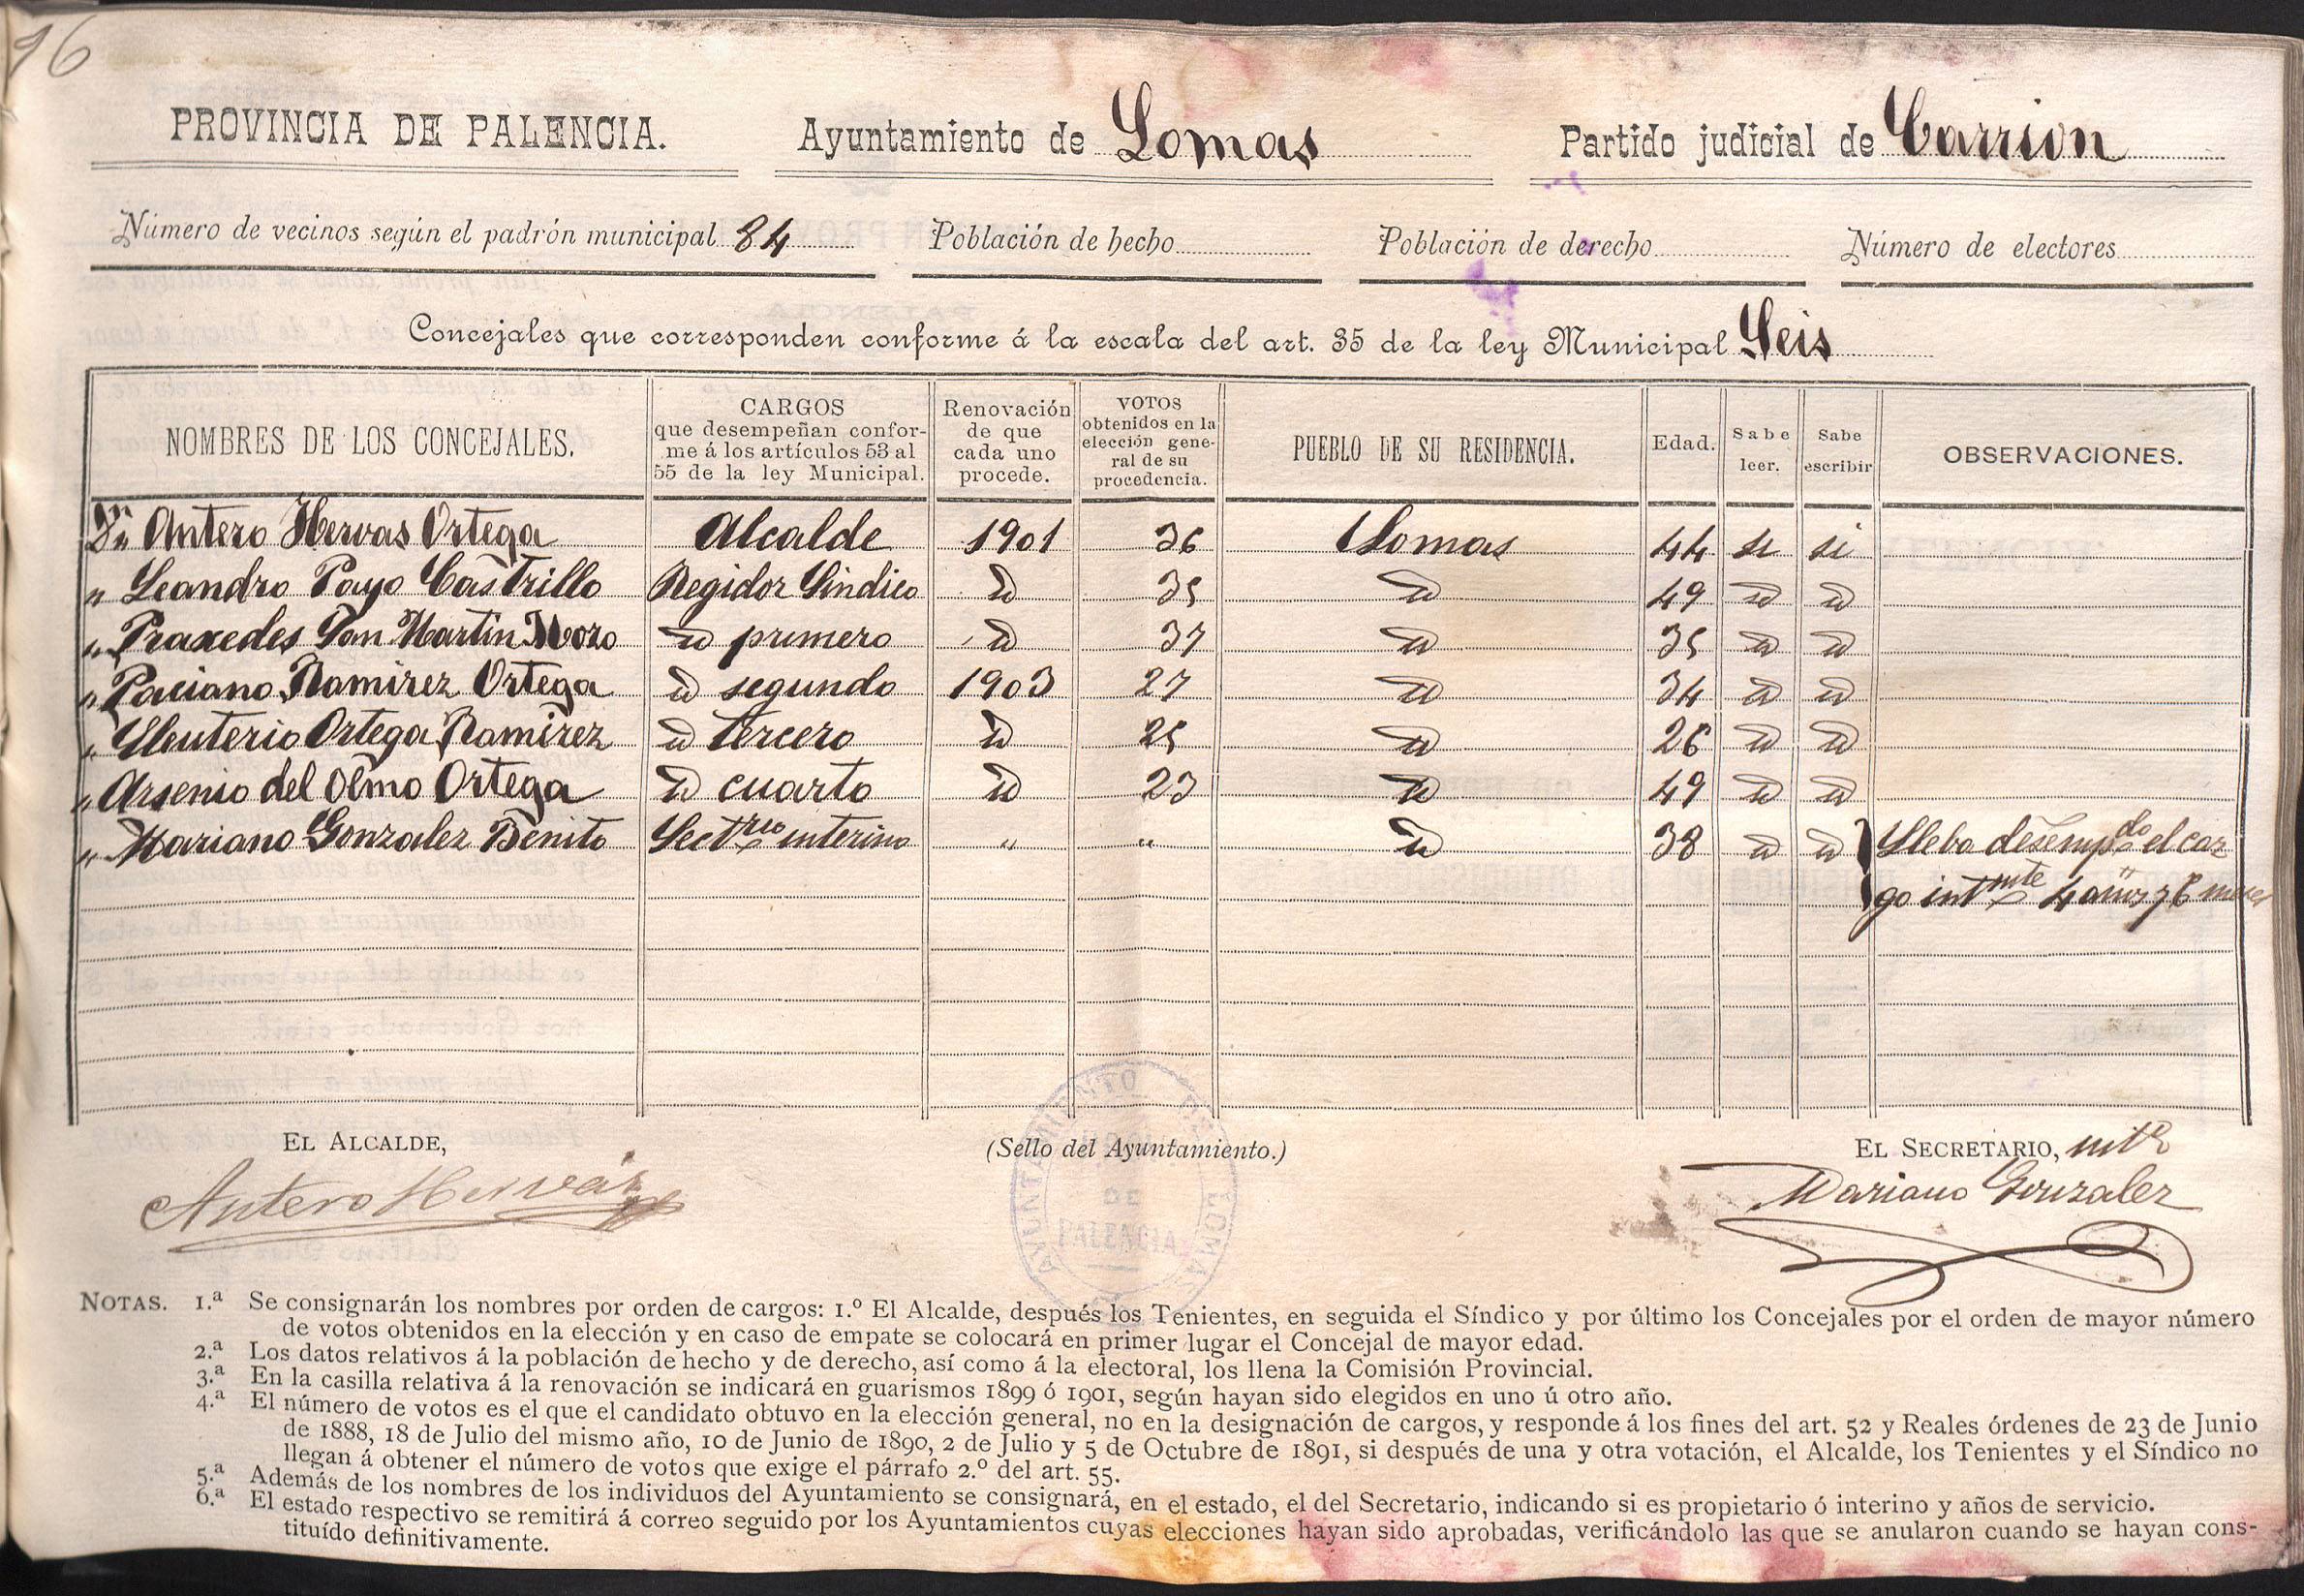 96
PROVINCIA DE PALENCIA. Ayuntamiento de Lomas Partido judicial de Carrion
Número de vecinos según el padrón municipal 84 Población de hecho Población de derecho Número de electores
Concejales que corresponden conforme á la escala del art. 35 de la ley Municipal Seis
NOMBRES DE LOS CONCEJALES.
CARGOS
que desempeñan confor-
me á los artículos 53 al
55 de la ley Municipal.
Renovación
de que
cada uno
procede.
VOTOS
obtenidos en la
elección gene-
ral de su
procedencia.
PUEBLO DE SU RESIDENCIA.
Edad.
Sabe
leer.
Sabe
escribir
OBSERVACIONES.
Dn Antero Hervas Ortega Alcalde 1901 36 Lomas 44 si si
" Leandro Payo Castrillo Regidor Sindico id 35 id 49 id id
" Praxedes San Martin Mozo id primero id 37 id 35 id id
" Paciano Ramirez Ortega id segundo 1903 27 id 34 id id
" Eleuterio Ortega Ramirez id tercero id 25 id 26 id id
" Arsenio del Olmo Ortega id cuarto id 23 id 49 id id
" Mariano Gonzalez Benito Sectrio interino " " id 38 id id Lleba desempdo el car
go intmte 4 años y 6 meses
EL ALCALDE, (Sello del Ayuntamiento.) EL SECRETARIO, intº
Antero Hervás Mariano Gonzalez
AYUNTAMIENTO DE LOMAS
DE
PALENCIA
NOTAS. 1.ª Se consignarán los nombres por orden de cargos: 1.º El Alcalde, después los Tenientes, en seguida el Síndico y por último los Concejales por el orden de mayor número
de votos obtenidos en la elección y en caso de empate se colocará en primer lugar el Concejal de mayor edad.
2.ª Los datos relativos á la población de hecho y de derecho, así como á la electoral, los llena la Comisión Provincial.
3.ª En la casilla relativa á la renovación se indicará en guarismos 1899 ó 1901, según hayan sido elegidos en uno ú otro año.
4.ª El número de votos es el que el candidato obtuvo en la elección general, no en la designación de cargos, y responde á los fines del art. 52 y Reales órdenes de 23 de Junio
de 1888, 18 de Julio del mismo año, 10 de Junio de 1890, 2 de Julio y 5 de Octubre de 1891, si después de una y otra votación, el Alcalde, los Tenientes y el Síndico no
llegan á obtener el número de votos que exige el párrafo 2.º del art. 55.
5.ª Además de los nombres de los individuos del Ayuntamiento se consignará, en el estado, el del Secretario, indicando si es propietario ó interino y años de servicio.
6.ª El estado respectivo se remitirá á correo seguido por los Ayuntamientos cuyas elecciones hayan sido aprobadas, verificándolo las que se anularon cuando se hayan cons-
tituído definitivamente.